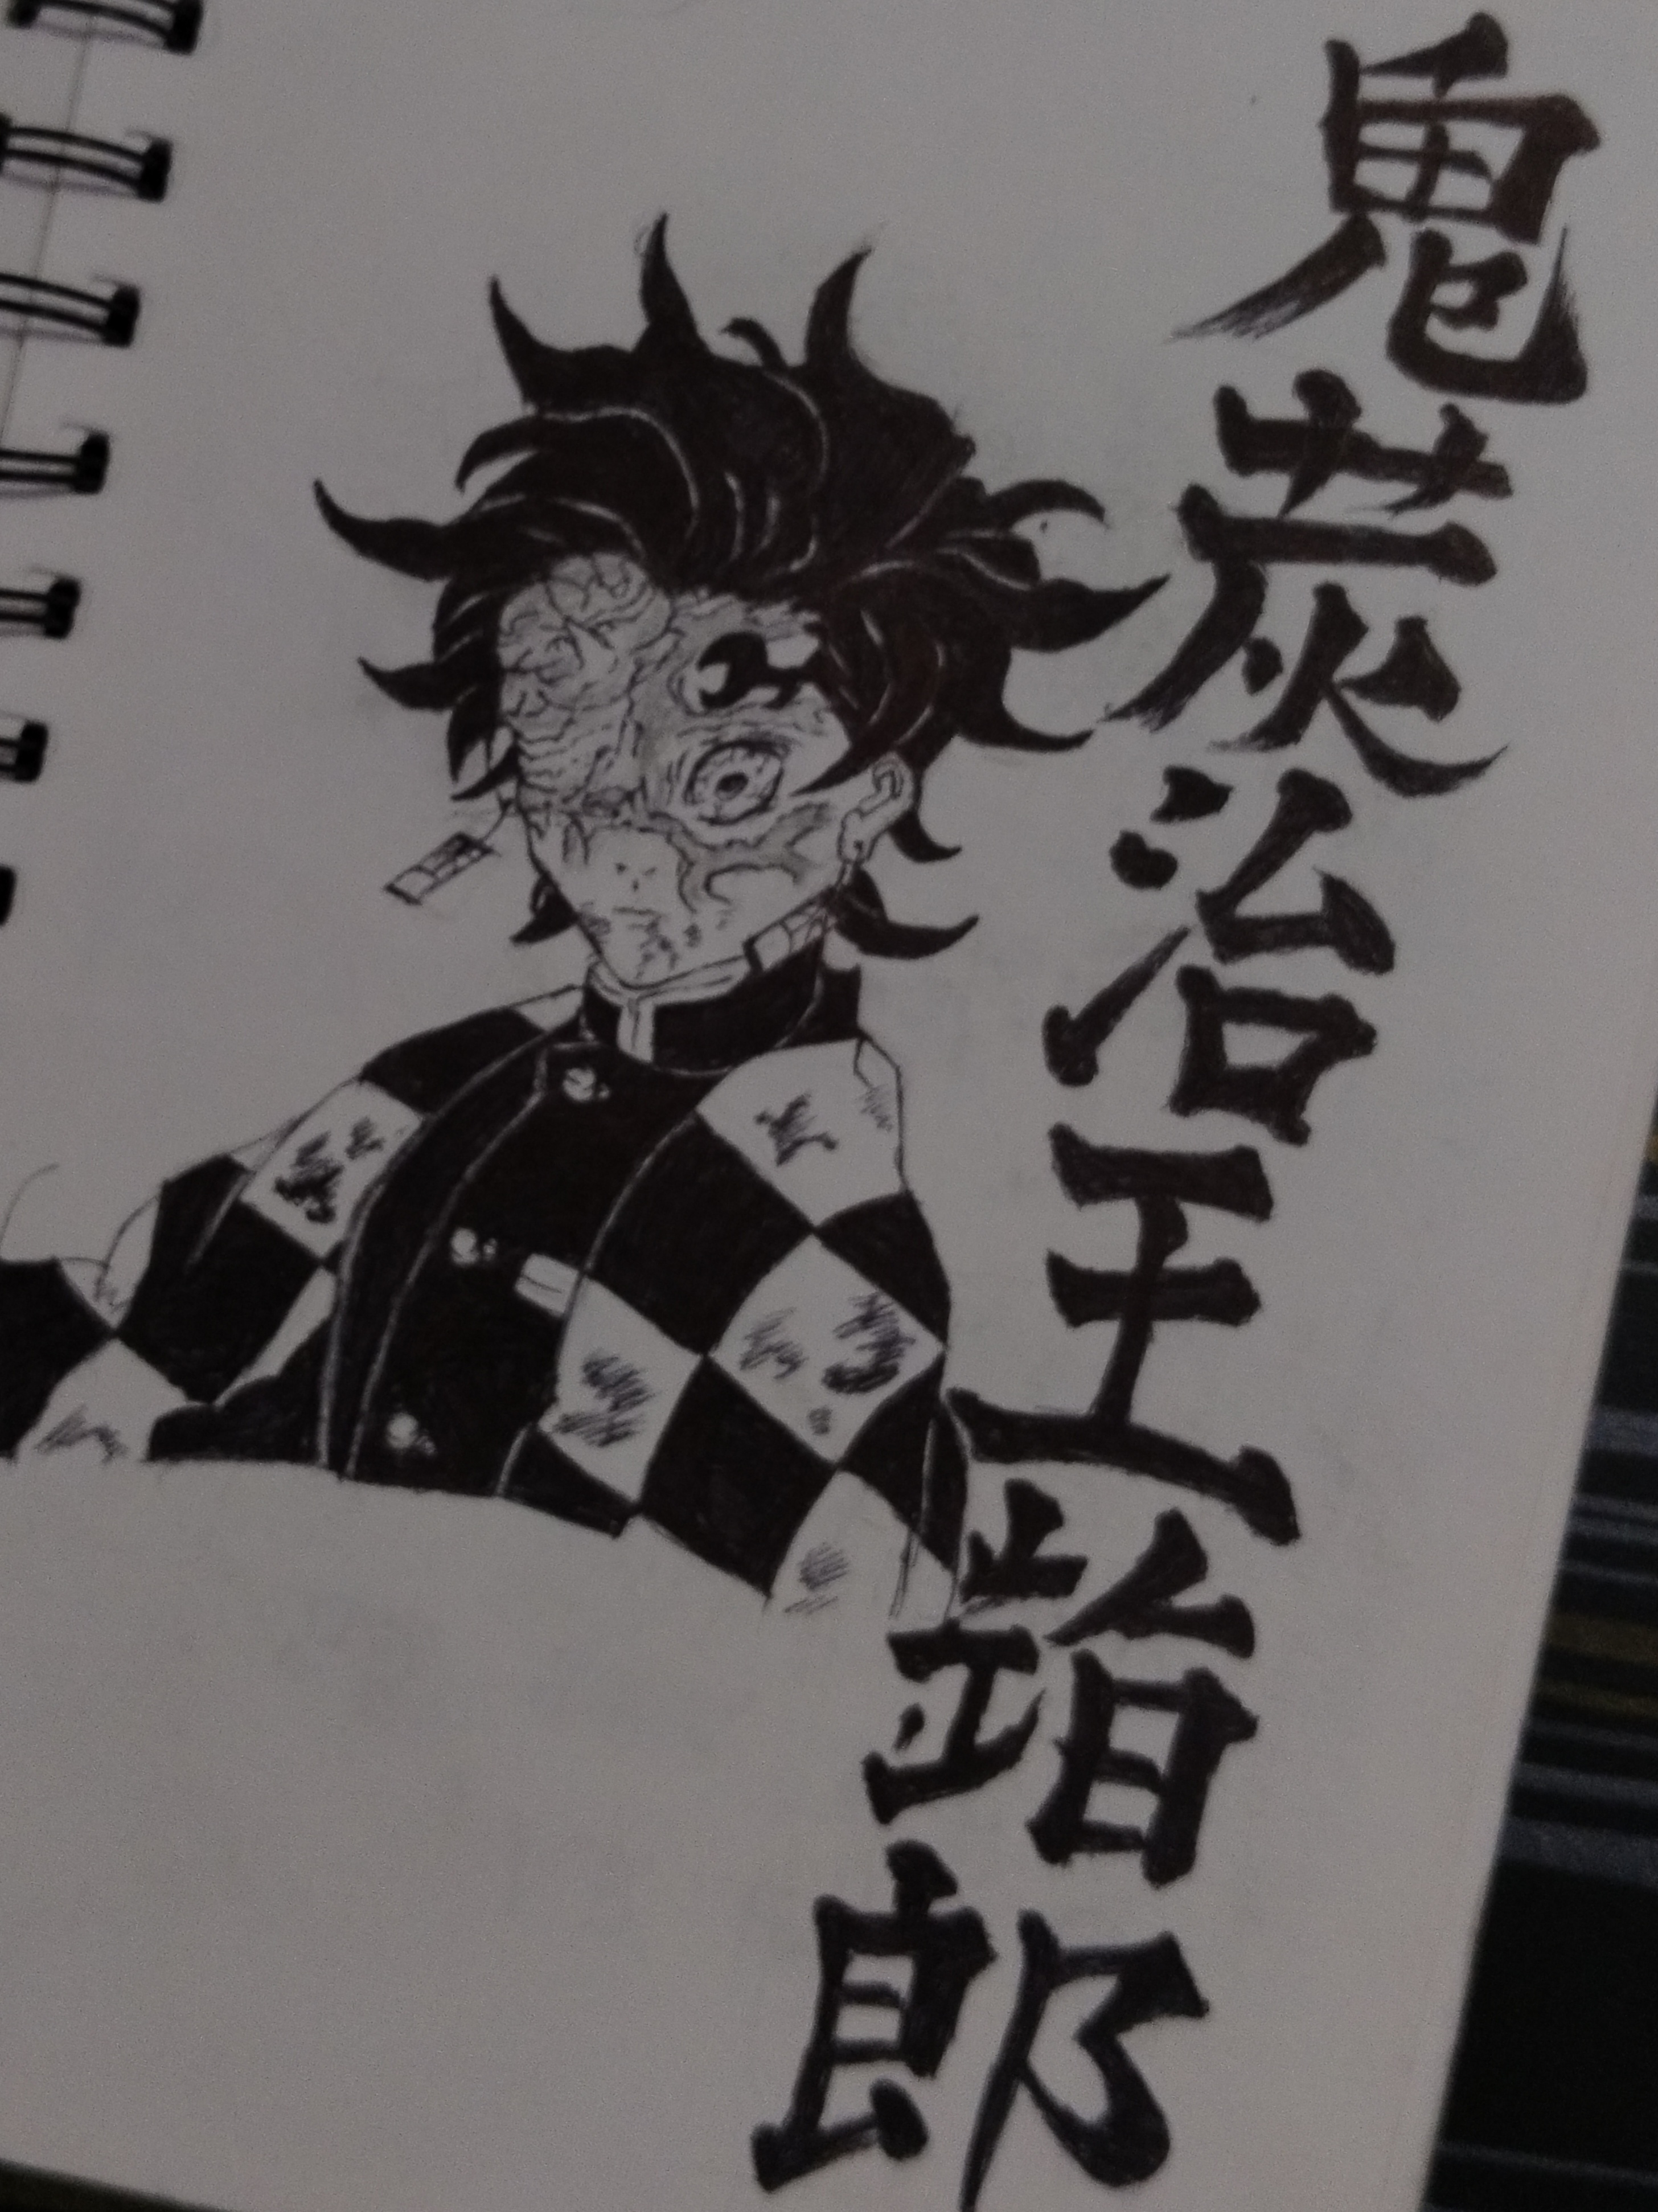 鬼炭治王郎